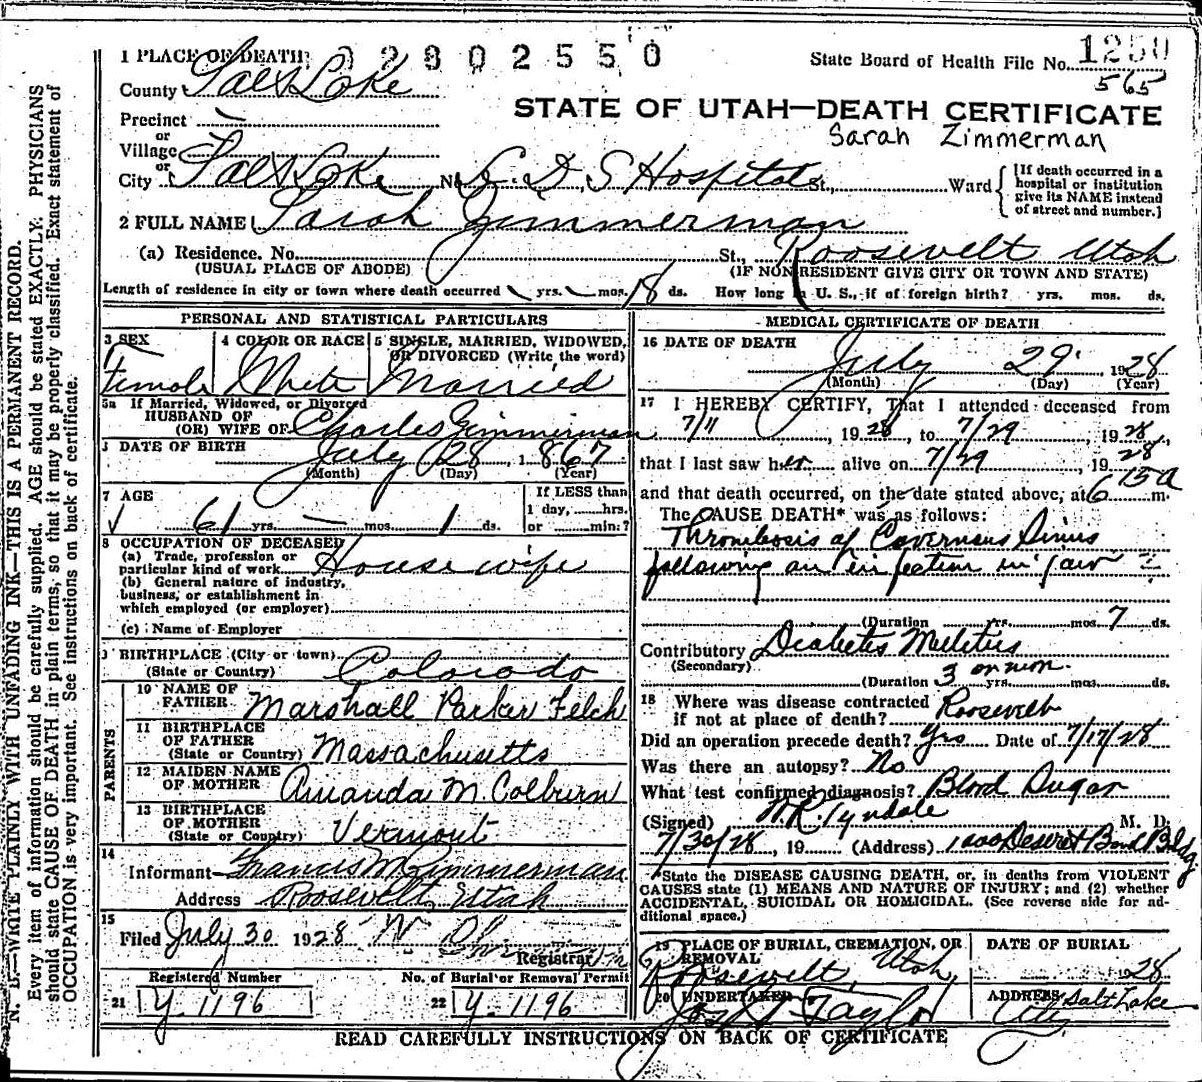 N. B.—WRITE PLAINLY WITH UNFADING INK—THIS IS A PERMANENT RECORD.
Every item of information should be carefully supplied. AGE should be stated EXACTLY. PHYSICIANS
should state CAUSE OF DEATH in plain terms, so that it may be properly classified. Exact statement of
OCCUPATION is very important. See instructions on back of certificate.
1 PLACE OF DEATH 2802550
State Board of Health File No. 1250
565
County Salt Lake
STATE OF UTAH—DEATH CERTIFICATE
Precinct —
Sarah Zimmerman
or
Village
or
City Salt Lake No. L. D. S Hospital St., Ward
[If death occurred in a
hospital or institution
give its NAME instead
of street and number.]
2 FULL NAME Sarah Zimmerman
(a) Residence. No. St., Roosevelt Utah
(USUAL PLACE OF ABODE) (IF NON RESIDENT GIVE CITY OR TOWN AND STATE)
Length of residence in city or town where death occurred yrs. mos. 18 ds. How long in U. S., if of foreign birth? yrs. mos. ds.
PERSONAL AND STATISTICAL PARTICULARS
3 SEX 4 COLOR OR RACE 5 SINGLE, MARRIED, WIDOWED,
OR DIVORCED (Write the word)
Female White Married
5a If Married, Widowed, or Divorced
HUSBAND OF
(OR) WIFE OF Charles Zimmerman
DATE OF BIRTH July 28, 1867
(Month) (Day) (Year)
7 AGE If LESS than
1 day, hrs.
61 yrs. — mos. 1 ds. or min.?
8 OCCUPATION OF DECEASED
(a) Trade, profession or
particular kind of work Housewife
(b) General nature of industry,
business, or establishment in
which employed (or employer)
(c) Name of Employer
9 BIRTHPLACE (City or town)
(State or Country) Colorado
PARENTS
10 NAME OF
FATHER Marshall Parker Felch
11 BIRTHPLACE
OF FATHER
(State or Country) Massachusetts
12 MAIDEN NAME
OF MOTHER Amanda M. Colburn
13 BIRTHPLACE
OF MOTHER
(State or Country) Vermont
14
Informant Francis M Zimmerman
Address Roosevelt, Utah
15
Filed July 30 1928
Registrar
Registered Number No. of Burial or Removal Permit
21 Y-1196 22 Y-1196
MEDICAL CERTIFICATE OF DEATH
16 DATE OF DEATH
July 29 1928
(Month) (Day) (Year)
17 I HEREBY CERTIFY, That I attended deceased from
7/11, 1928, to 7/29 1928,
that I last saw her alive on 7/29, 1928
and that death occurred, on the date stated above, at 6 15 a m.
The CAUSE DEATH* was as follows:
Thrombosis of Cavernous Sinus
following an infection in jaw
(Duration yrs. mos. 7 ds.
Contributory Diabetes Mellitus
(Secondary) 3 or mon.
(Duration yrs. mos. ds.
18 Where was disease contracted
if not at place of death? Roosevelt
Did an operation precede death? Yes Date of 7/17/28
Was there an autopsy? No
What test confirmed diagnosis? Blood Sugar
(Signed) W.R. Tyndale M. D.
7/30/28, 19 (Address) 1000 Deseret Bank Bldg
*State the DISEASE CAUSING DEATH, or, in deaths from VIOLENT
CAUSES state (1) MEANS AND NATURE OF INJURY; and (2) whether
ACCIDENTAL, SUICIDAL OR HOMICIDAL. (See reverse side for ad-
ditional space.)
19 PLACE OF BURIAL, CREMATION, OR
REMOVAL
DATE OF BURIAL
Roosevelt, Utah, 28
20 UNDERTAKER ADDRESS Salt Lake
Taylor City
READ CAREFULLY INSTRUCTIONS ON BACK OF CERTIFICATE